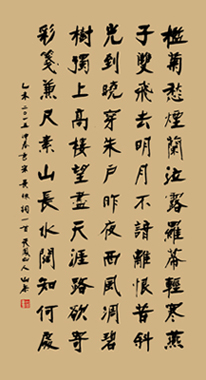 檻菊愁煙蘭泣露羅幕輕寒燕
子雙飛去明月不諳離恨苦斜
光到曉穿朱戶昨夜西風凋碧
樹獨上高樓望盡天涯路欲寄
彩箋兼尺素山長水闊知何處
乙未二〇一五
晏殊詞一首